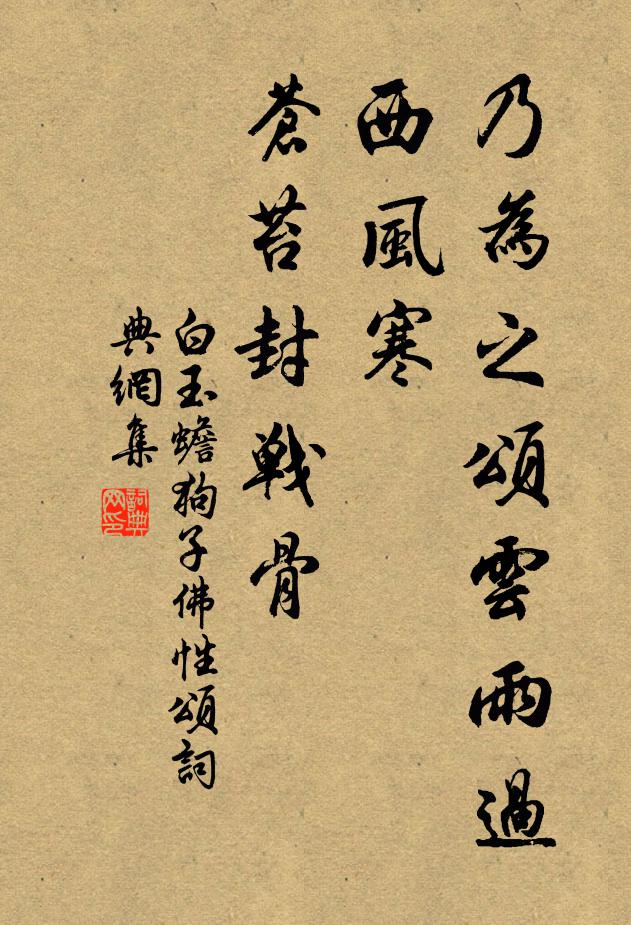 乃為之頌雲雨過
西風寒
蒼苔封戰骨
白玉蟾狗子佛性頌詞
典網集
詞典
网印